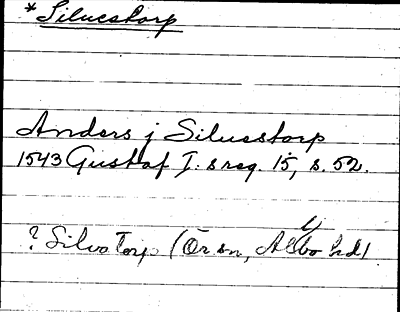 * Siluestorp
Anders j Siluestorp
1543 Gustaf I:s reg. 15, s. 52.
? Silvatorp (Ör sn, Albo hd)